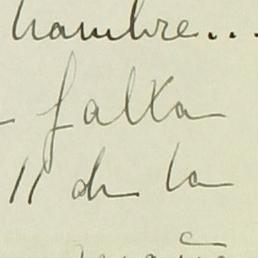 hambre...
- falta
11 de la